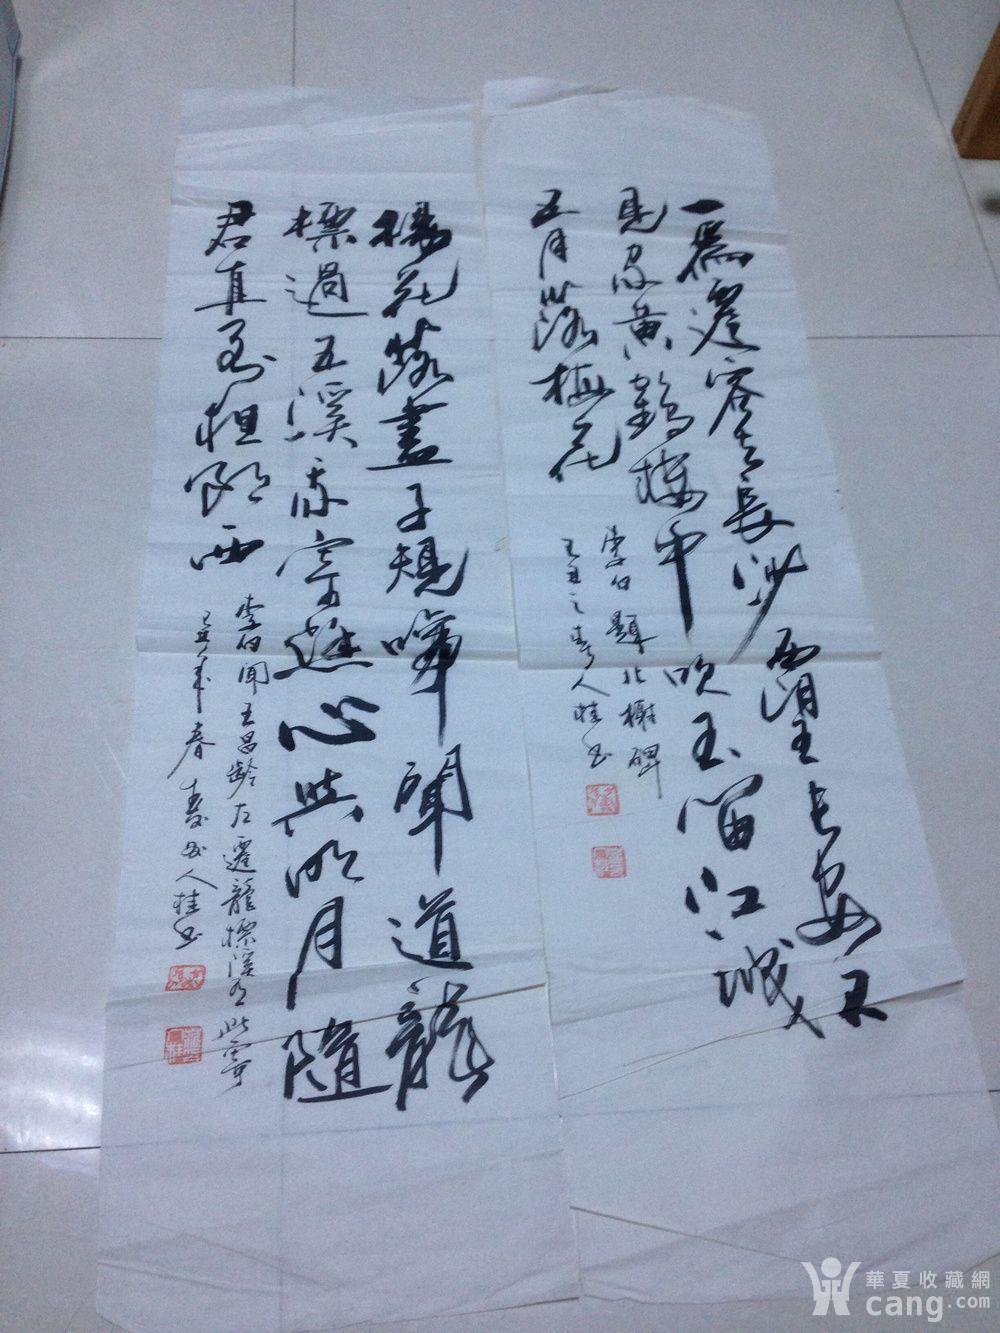 一為遷客去長沙西望長安不
見家黃鶴樓中吹玉笛江城
五月落梅花
李白題北榭碑
己丑之春人桂書
楊花落盡子規啼聞道龍
標過五溪我寄愁心與明月隨
君直到夜郎西
李白聞王昌齡左遷龍標遙有此寄
己丑年春人桂書
華夏收藏網
cang.com